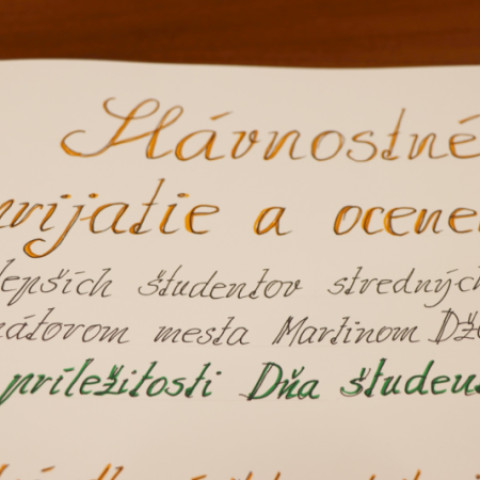 Slávnostné
rijatie a ocene
lepších študentov stredných
nátorom mesta Martinom Dž
príležitosti Dňa študen